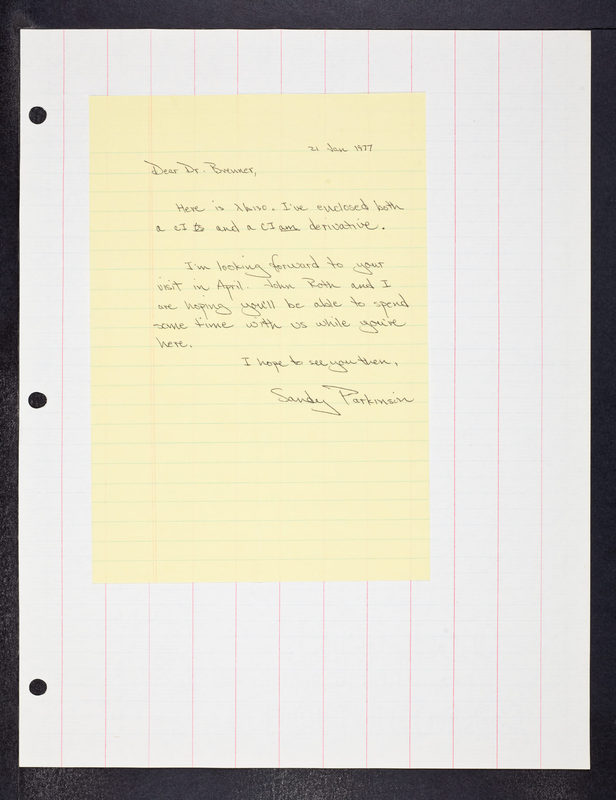 21 Jan 1977
Dear Dr. Brenner,
Here is λh120. I've enclosed both
a cI ts and a cI am derivative.
I'm looking forward to your
visit in April. John Roth and I
are hoping you'll be able to spend
some time with us while you're
here.
I hope to see you then,
Sandy Parkinson